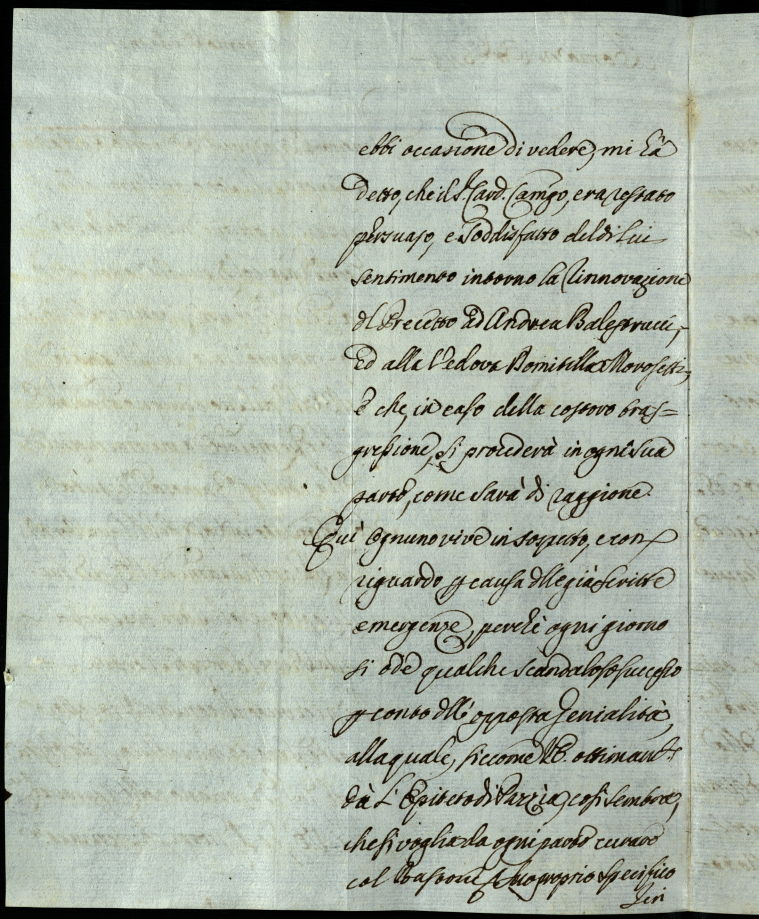 ebbi occasione di vedere, mi hà
detto, che il S.r Card. Camgo, era restato
persuaso, e soddisfatto del di lui
sentimento intorno la rinnovazione
dl Precetto ad Andrea Balestrucci,
ed alla Vedova Domitilla
e che, in caso della costoro tras=
gressione, si procederà in ogni sua
parte, come sarà di raggione.
Quì ognuno vive in sospetto, e con
riguardo p causa dlle già scritte
emergenze, perche ogni giorno
si ode qualche scandaloso successo
p conto dll' opposta Genialità,
alla quale, siccome V.E. ottimam.te
dà l'Epiteto di Pazzia, così sembra,
che si voglia da ogni parte curare
col bastone suo proprio specifico